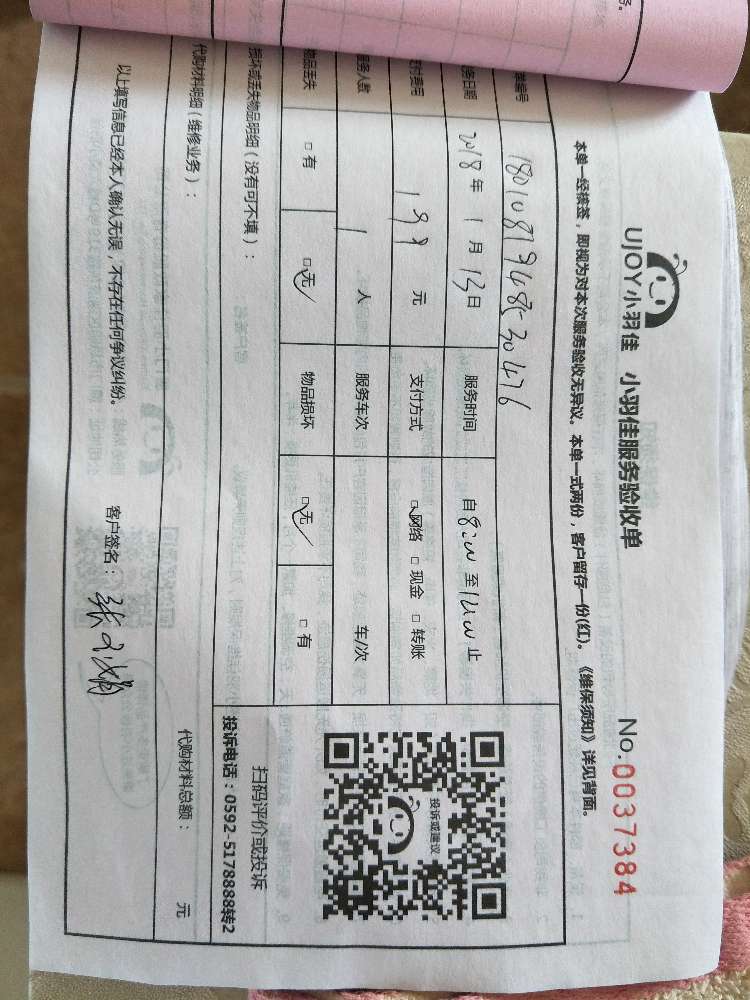 UJOY小羽佳 小羽佳服务验收单
No:0037384
本单一经核签，即视为对本次服务验收无异议。本单一式两份，客户留存一份(红)。《维保须知》详见背面。
单编号 1801081948530476
务日期 2018年1月13日 服务时间 自8:00至12:00止
付费用 199元 支付方式 网络 现金 转账
务人数 1人 服务车次 车/次
物品丢失 有 无 物品损坏 无 有
投诉或建议
损坏或丢失物品明细（没有可不填）：
扫码评价或投诉
投诉电话：0592-5178888转2
代购材料明细（维修业务）：
代购材料总额： 元
以上填写信息已经本人确认无误，不存在任何争议纠纷。
客户签名：张